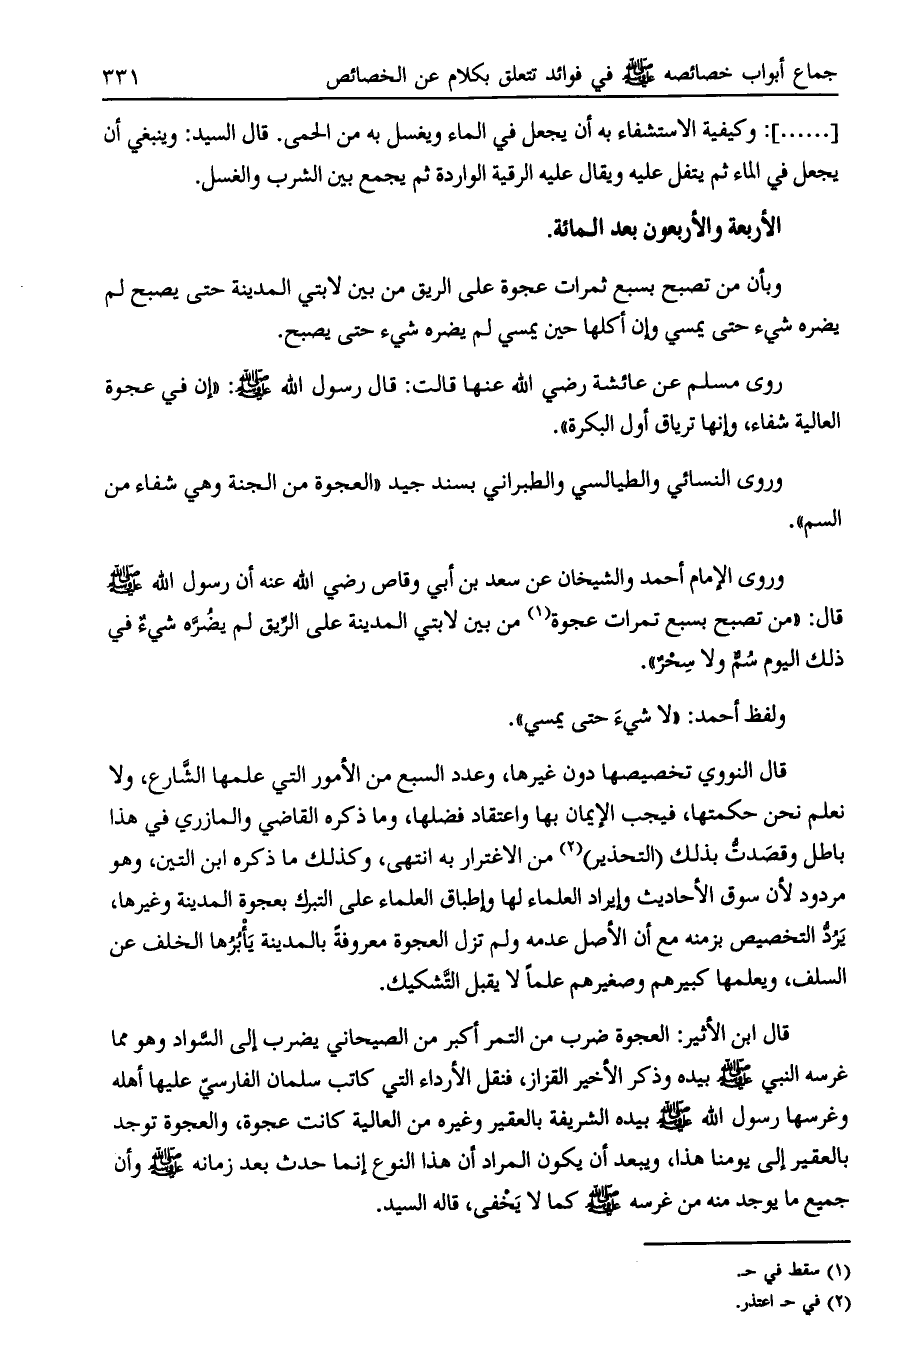 جماع أبواب خصائصه ﷺ في فوائد تتعلق بكلام عن الخصائص ٣٣١
[......]: وكيفية الاستشفاء به أن يجعل في الماء ويغسل به من الحمى. قال السيد: وينبغي أن
يجعل في الماء ثم يتفل عليه ويقال عليه الرقية الواردة ثم يجمع بين الشرب والغسل.
الأربعة والأربعون بعد المائة.
وبأن من تصبح بسبع ثمرات عجوة على الريق من بين لابتي المدينة حتى يصبح لم
يضره شيء حتى يمسي وإن أكلها حين يمسي لم يضره شيء حتى يصبح.
روى مسلم عن عائشة رضي الله عنها قالت: قال رسول الله ﷺ: «إن في عجوة
العالية شفاء، وإنها ترياق أول البكرة».
وروى النسائي والطيالسي والطبراني بسند جيد «العجوة من الجنة وهي شفاء من
السم».
وروى الإمام أحمد والشيخان عن سعد بن أبي وقاص رضي الله عنه أن رسول الله ﷺ
قال: «من تصبح بسبع تمرات عجوة(١) من بين لابتي المدينة على الرِّيق لم يضُرَّه شيءٌ في
ذلك اليوم سُمٌّ ولا سِحْرٌ».
ولفظ أحمد: «لا شيءَ حتى يمسي».
قال النووي تخصيصها دون غيرها، وعدد السبع من الأمور التي علمها الشَّارع، ولا
نعلم نحن حكمتها، فيجب الإيمان بها واعتقاد فضلها، وما ذكره القاضي والمازري في هذا
باطل وقصَدتُّ بذلك (التحذير)(٢) من الاغترار به انتهى، وكذلك ما ذكره ابن التين، وهو
مردود لأن سوق الأحاديث وإيراد العلماء لها وإطباق العلماء على التبرك بعجوة المدينة وغيرها،
يَرُدُّ التخصيص بزمنه مع أن الأصل عدمه ولم تزل العجوة معروفةً بالمدينة يَأْبُرُها الخلف عن
السلف، ويعلمها كبيرهم وصغيرهم علماً لا يقبل التَّشكيك.
قال ابن الأثير: العجوة ضرب من التمر أكبر من الصيحاني يضرب إلى السَّواد وهو مما
غرسه النبي ﷺ بيده وذكر الأخير القزاز، فنقل الأرداء التي كاتب سلمان الفارسيّ عليها أهله
وغرسها رسول الله ﷺ بيده الشريفة بالعقير وغيره من العالية كانت عجوة، والعجوة توجد
بالعقير إلى يومنا هذا، ويبعد أن يكون المراد أن هذا النوع إنما حدث بعد زمانه ﷺ وأن
جميع ما يوجد منه من غرسه ﷺ كما لا يَخْفى، قاله السيد.
(١) سقط في حـ.
(٢) في حـ اعتذر.